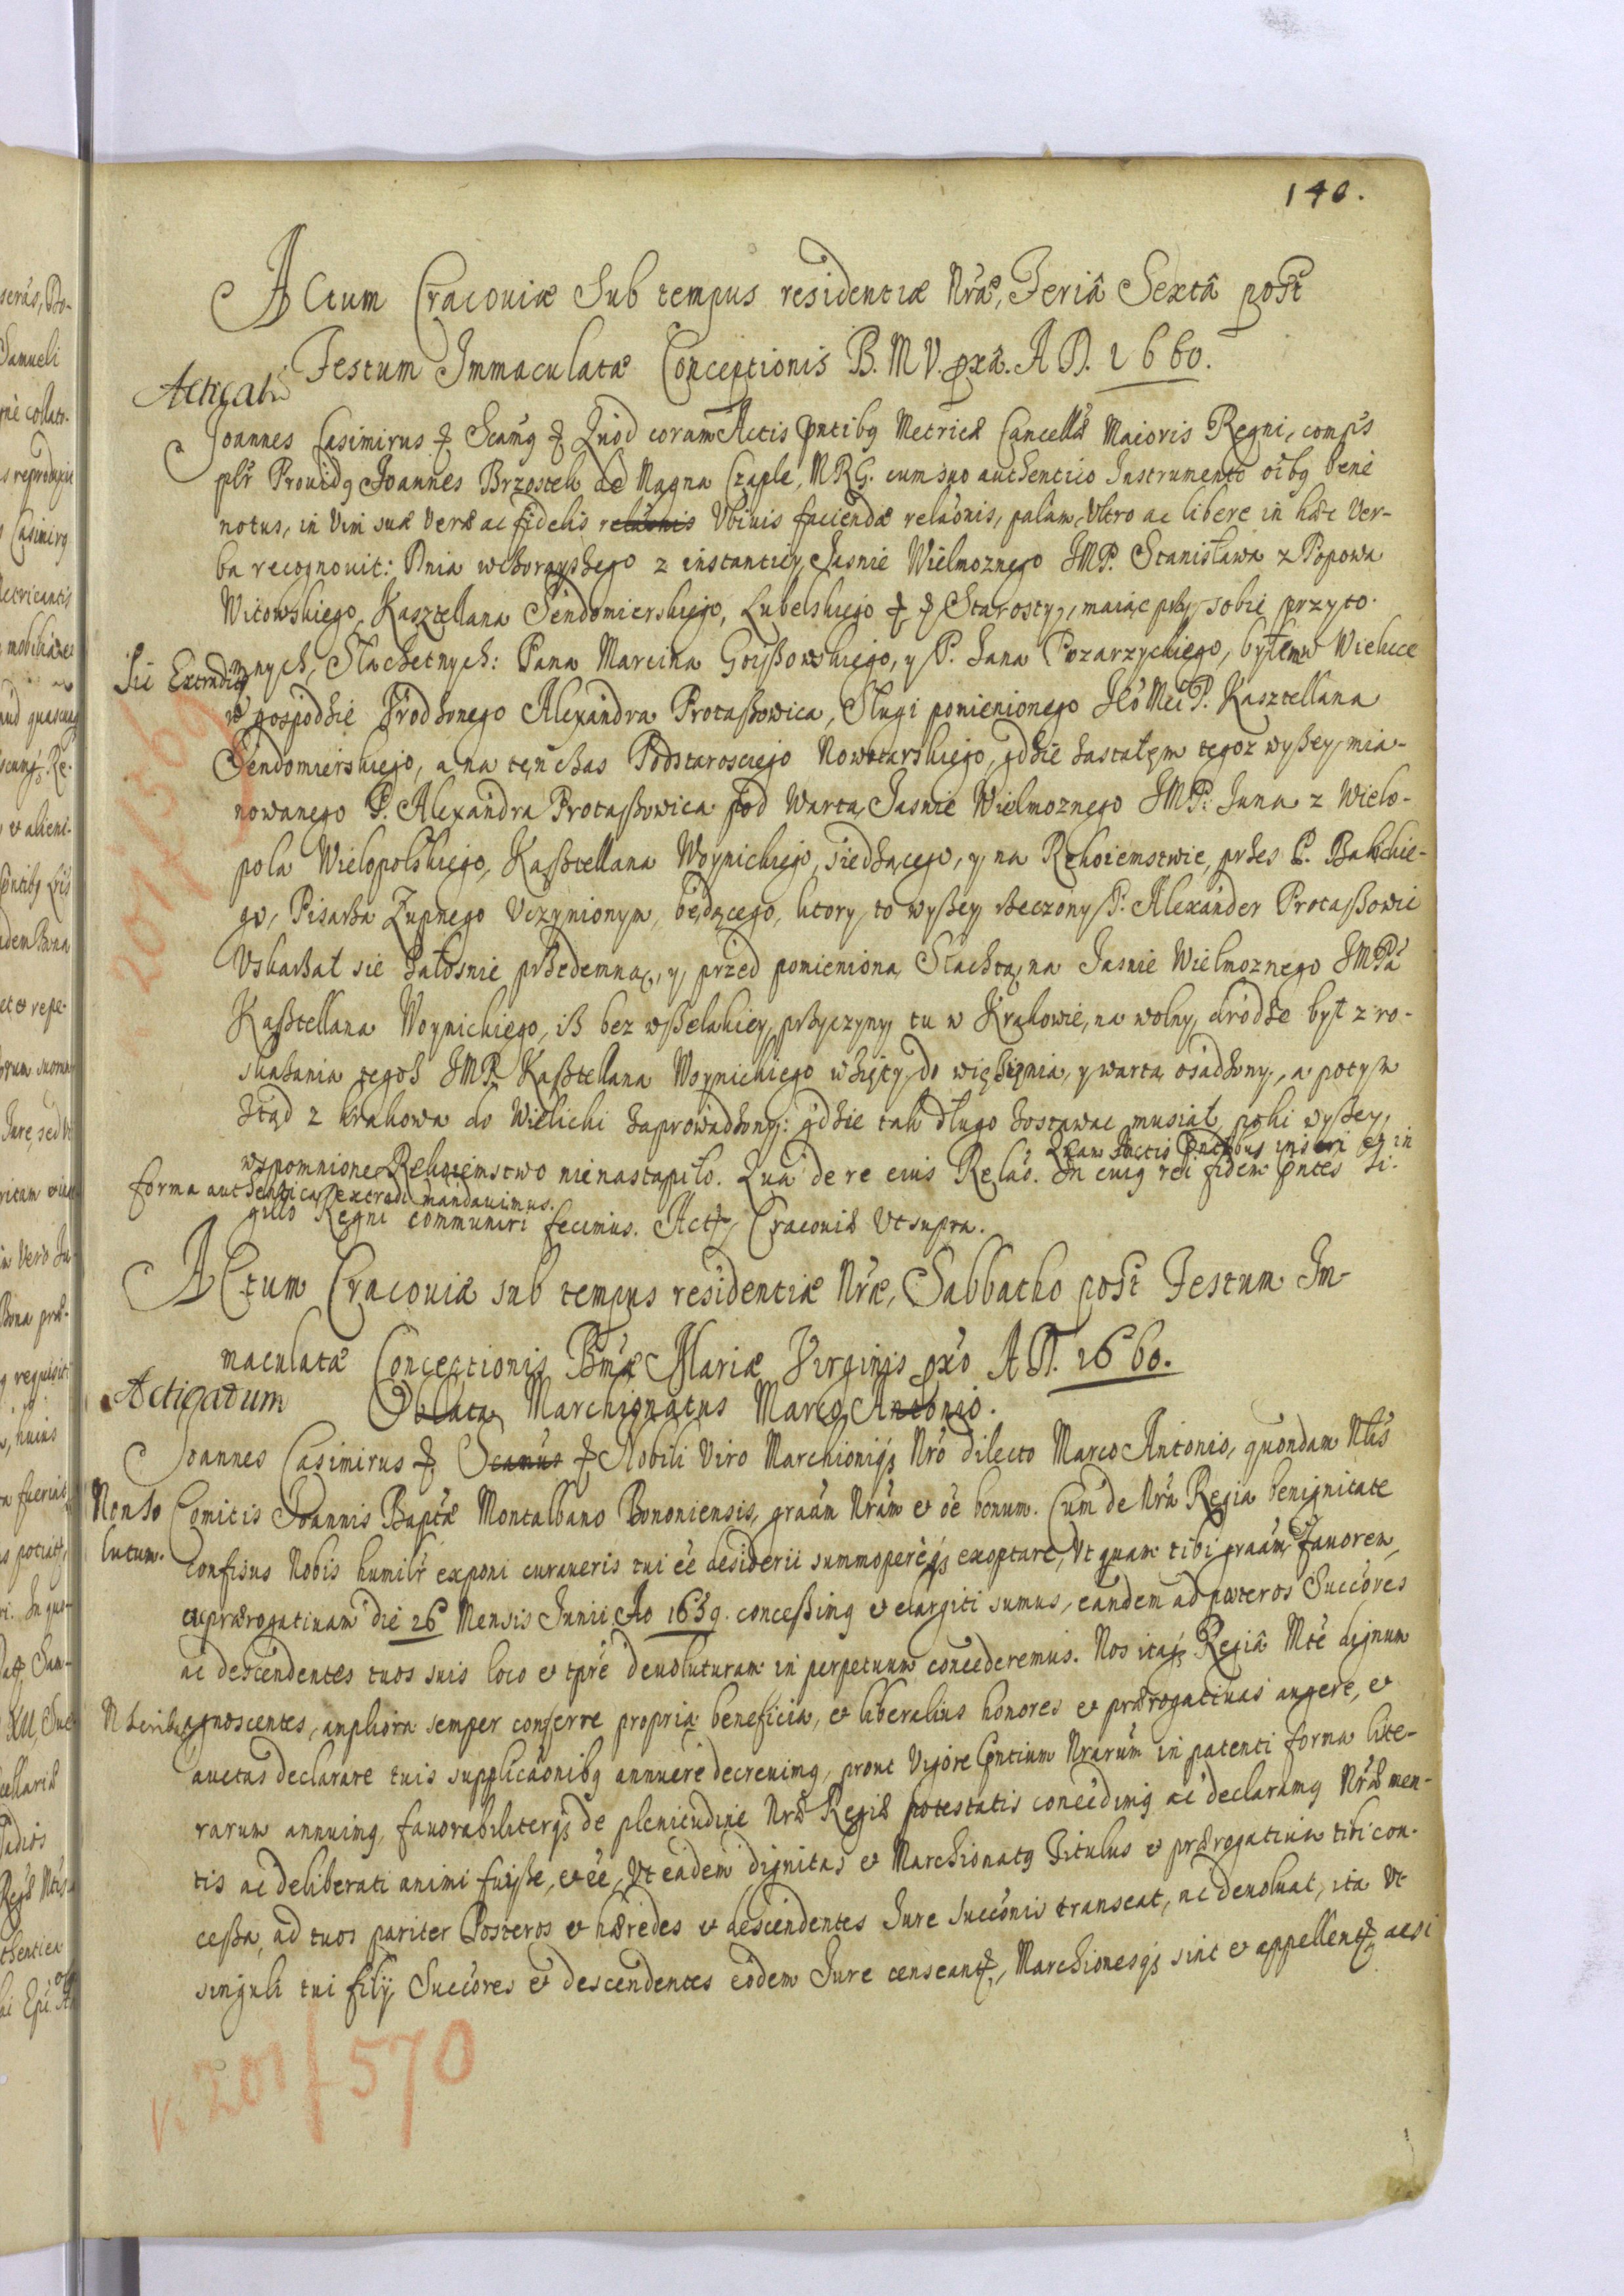 140.
Actum Cracoviæ Sub tempus residentiæ Nræ, Feriâ Sextâ post
Festum Immaculatæ Conceptionis B. M V. pxâ. A D. 1660.
Acticat
Joannes Casimirus & Scamg & Quod coram Actis pntibg Metricæ Cancellæ Maioris Regni, compis
plr Prouidg Joannes Brzostek de Magna Czaple, MRG. cum suo authentico Instrumento oibg bene
notus, in Vim suæ Veræ ac fidelis relaonis Vbiuis faciendæ relaonis, palam, Vltro ac libere in hæc Ver-
ba recognouit: Dnia wczorayszego z instantiey Jasnie Wielmoznego JMP. Stanisława z Popowa
Witowskiego, Kasztellana Sendomierskiego, Lubelskiego & & Starosty, maiąc przy sobie przyto-
Sie Extradit
mnych, Slachetnych: Pana Marcina Goyszowskiego, y P. Jana Pozarzyckiego, byłem w Wielicce
w gospodzie Vrodzonego Alexandra Protaszowica, Slugi ponienionego JEo Mci P. Kasztellana
Sendomierskiego, a na tęn czas Podstarosciego Nowotarskiego, gdzie zastałęm tegoz wyszey mia-
nowanego P. Alexandra Protaszowica pod Wartą Jasnie Wielmoznego JMP: Jana z Wielo-
pola Wielopolskiego, Kasztellana Woynickiego, siedzącego, y na Rękoiemstwie, przes P. Bakichie-
go, Pisarza Zupnego Vczynionym, będącego, ktory, to wyszey rzeczony P. Alexander Protaszowic
Vskarzał sie zalosnie przedemną, y przed ponieniona Slachtą, na Jasnie Wielmoznego JMPa
Kasztellana Woynickiego, isz bez wszelakiey przyczyny tu w Krakowie, na wolny drodze był z ro-
skazania tegoz JMP. Kasztellana Woynickiego wzięty, do więzięnia, y wartą osadzony, a potym
ztąd z krakowa do Wielicki zaprowadzony: gdzie tak długo zostawac musiał, poki wyszey
wspomnione Rękoiemstwo nie nastąpiło. Qua de re eius Relao. Quam Actis pntibus inseri et in
forma authentica extradi mandauimus. In cuig rei fidem pntes Si-
gillo Regni communiri fecimus. Act, Cracouiæ Vt supra.
Actum Cracouiæ sub tempus residentiæ Nræ, Sabbatho post Festum Im-
maculatæ Conceptionis Bmæ Mariæ Virginis pxo A D. 1660.
Acticatum
Oblata Marchionatus Marco Antonio.
Joannes Casimirus & Scamus & Nobili Viro Marchioniqs Nro dilecto Marco Antonio, quondam Nlis
Non so
lutum.
Comitis Joannis Baptæ Montalbano Bononiensis, graam Nram et oe bonum. Cum de Nra Regia benignitate
confisus Nobis humilr exponi curaueris tui ee desiderii summopereqs exoptare, Vt quam tibi graam, fauorem,
ac prærogatiuam die 26 Mensis Junii Ao 1659. concessimg et elargiti sumus, eandem ad posteros Succores
ac descendentes tuos suis loco et tpre deuoluturam in perpetuum concederemus. Nos itaqs Regiâ Mte dignum
agnoscentes, ampliora semper conferre propria beneficia, et liberalius honores et prærogatiuas augere, et
auctas declarare tuis supplicaonibg annuere decreuimg, prout Vigore pntium Nrarum in patenti forma lite-
rarum annuimg, fauorabiliterqs de plenitudine Nræ Regiæ potestatis concedimg ac declaramg Nræ men-
tis ac deliberati animi fuisse, et ee, Vt eadem dignitas et Marchionatg Titulus et prærogatiua tibi con-
cessa, ad tuos pariter Posteros et hæredes et descendentes Jure succonis transeat, ac deuoluat, ita Vt
singuli tui filij, Succores et descendentes eodem Jure censeant, Marchionesqs sint et appellent, ac si
v. 201 f 570